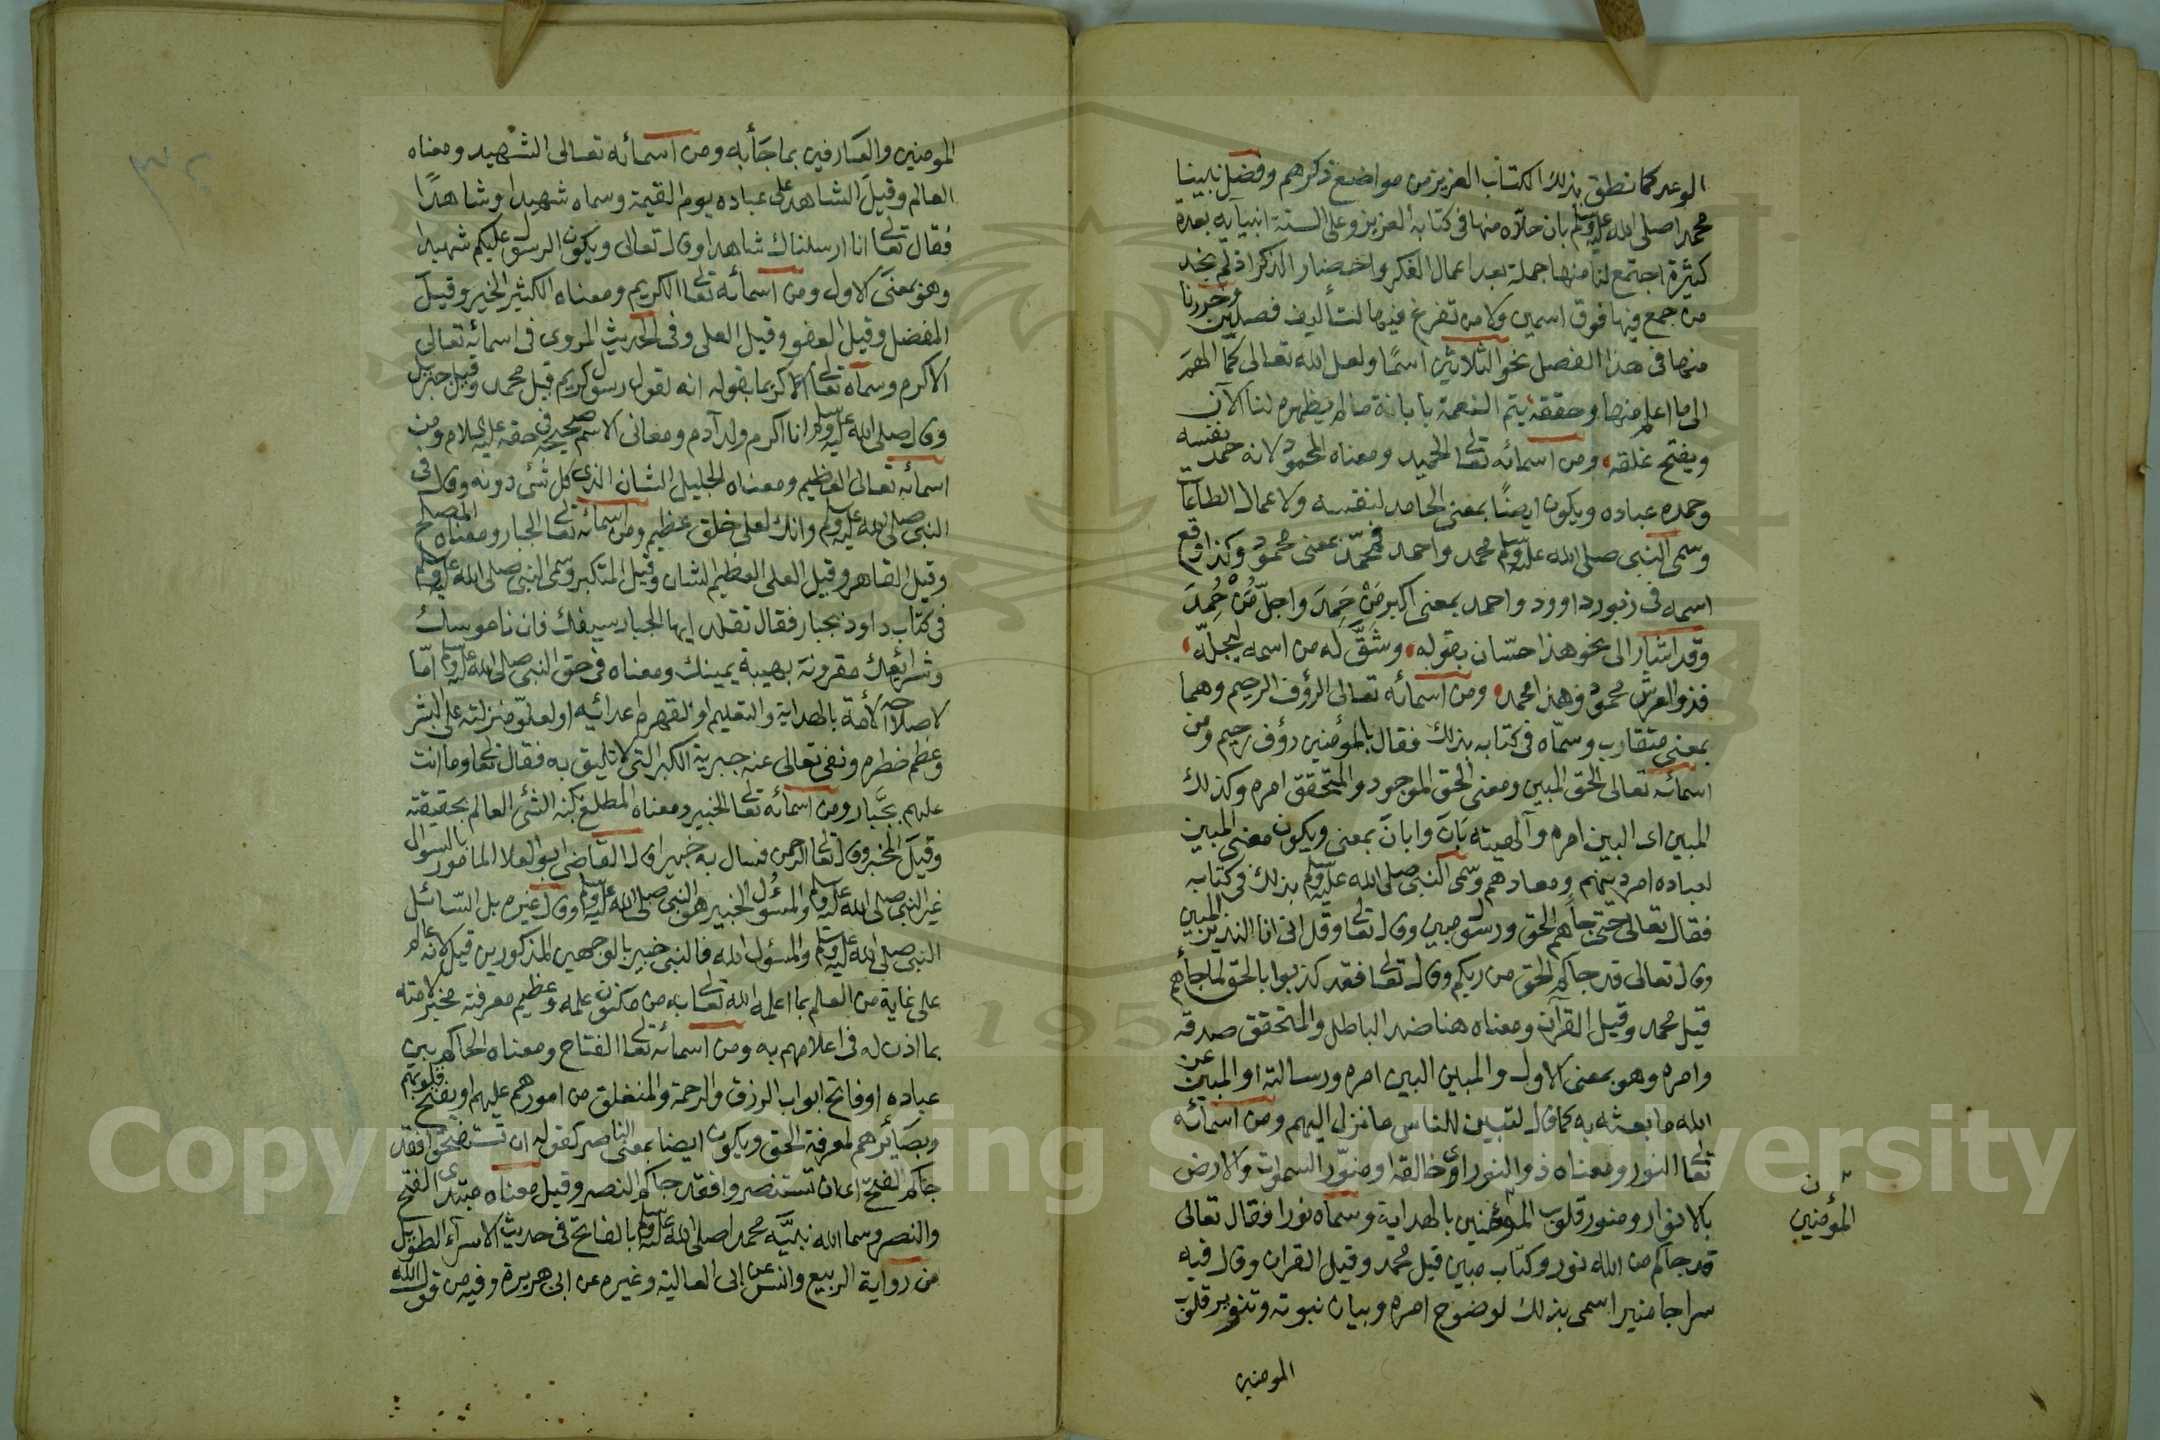 الوعد كما نطق بذلك الكتاب العزيز من مواضع ذكرهم وفضل نبينا
محمدا صلى الله عليه وسلم بان حلاه منها في كتابه العزيز وعلى السنة انبيايه بعدة
كثيرة اجتمع لنا منها جملة بعد اعمال الفكر واحضار الذكر اذ لم نجد
من جمع فيها فوق اسمين ولا من تفرغ فيها لتأليف فصلين وحررنا
منها في هذا الفصل نحو الثلاثين اسمًا ولعل الله تعالى كما الهم
الى ما اعلم منها وحققه يتم النعمة بابانة ما لم يظهره لنا الآن
ويفتح غلقه ومن اسمائه تعالى الحميد ومعناه المحمود لانه حمد نفسه
وحمده عباده ويكون ايضًا بمعنى الحامد لنفسه ولاعمال الطاعات
وسمى النبي صلى الله عليه وسلم محمد واحمد فمحمّد بمعنى محمود وكذا وقع
اسمه في زبور داوود واحمد بمعنى اكبر مَنْ حَمِدَ واجلّ مَنْ حُمِدَ
وقد اشار الى نحو هذا حسّان بقوله وشَقَّ له من اسمه ليجلّه
فذو العرش محمود وهذا محمد ومن اسمائه تعالى الرؤف الرحيم وهما
بمعنى متقارب وسمّاه في كتابه بذلك فقال بالمؤمنين رؤف رحيم ومن
اسمائه تعالى الحق المبين ومعنى الحق الموجود والمتحقق امره وكذلك
المبين اى البين امره وآلهيته بَانَ وابانَ بمعنى ويكون معنى المبين
لعباده امر دينهم ومعادهم وسمى النبي صلى الله عليه وسلم بذلك في كتابه
فقال تعالى حتى جأهم الحق ورسول مبين وقال تعالى وقل انى انا النذير المبين
وقال تعالى قد جاكم الحق من ربكم وقال تعالى فقد كذبوا بالحق لما جأهم
قيل محمد وقيل القرآن ومعناه هنا ضد الباطل والمتحقق صدقه
وامره وهو بمعنى الاول والمبين البين امره ورسالته او المبين عن
الله ما بعثه به كما قال لتبين للناس ما نزل اليهم ومن اسمائه
تعالى النور ومعناه ذو النور اى خالقه او منوّر السموات والارض
بالانوار ومنور قلوب المؤمنين بالهداية وسماه نورا فقال تعالى
قد جاكم من الله نور وكتاب مبين قيل محمد وقيل القران وقال فيه
سراجا منيرا سمى بذلك لوضوح امره وبيان نبوته وتنوير قلوب
المومنين
ن
المؤمنين
المومنين والعارفين بما جأبه ومن اسمائه تعالى الشهيد ومعناه
العالم وقيل الشاهد على عباده يوم القيمة وسماه شهيدا وشاهدًا
فقال تعالى انا ارسلناك شاهدا وقال تعالى ويكون الرسول عليكم شهيدا
وهو بمعنى الاول ومن اسمائه تعالى الكريم ومعناه الكثير الخير وقيل
المفضل وقيل العفو وقيل العلى وفى الحديث المروى في اسمائه تعالى
الاكرم وسماه تعالى كريما بقوله انه لقول رسول كريم قيل محمد وقيل جبريل
وقال صلى الله عليه وسلم انا اكرم ولد آدم ومعانى الاسم صحيحة في حقه عليه السلام ومن
اسمائه تعالى العظيم ومعناه الجليل الشان الذى كل شئ دونه وقال فى
النبي صلى الله عليه وسلم وانك لعلى خلق عظيم ومن اسمائه تعالى الجبار ومعناه المصلح
وقيل القاهر وقيل العلى العظيم الشان وقيل المتكبر وسمى النبي صلى الله عليه وسلم
في كتاب داود بجبار فقال تقلد ايها الجبار سيفك فان ناموسك
وشرائعك مقرونة بهيبة يمينك ومعناه في حق النبي صلى الله عليه وسلم امّا
لاصلاحه الامة بالهداية والتعليم او لقهره اعدائيه او لعلو منزلته على البشر
وعظم خطره ونفى تعالى عنه جبرية الكبر التى لا تليق به فقال تعالى وما انت
عليهم بجبَّار ومن اسمائه تعالى الخبير ومعناه المطلع بكنه الشئ العالم بحقيقته
وقيل المخبر وقال تعالى الرحمن فسال به خبيرا قال القاضى ابو العلا المامور بالسوال
غير النبي صلى الله عليه وسلم والمسؤل الخبير هو النبي صلى الله عليه وسلم وقال غيره بل السّائل
النبي صلى الله عليه وسلم والمسؤل الله فالنبي خبير بالوجهين المذكورين قيل لانه عالم
على غاية من العلم بما اعلمه الله تعالى به من مكنون علمه وعظيم معرفته مخبر لامته
بما اذن له في اعلامهم به ومن اسمائه تعالى الفتاح ومعناه الحاكم بين
عباده او فاتح ابواب الرزق والرحمة والمنغلق من امورهم عليهم او يفتح قلوبهم
وبصائرهم لمعرفة الحق ويكون ايضا بمعنى الناصر كقوله ان تستفتحوا فقد
جاكم الفتح اى ان تستنصروا فقد جاكم النصر وقيل معناه مبتدى الفتح
والنصر وسما الله نبيَّه محمدا صلى الله عليه وسلم بالفاتح في حديث الاسرآء الطويل
من رواية الربيع وانس عن ابى العالية وغيره عن ابى هريرة وفيه من قول الله
Copyright © King Saud University
1957